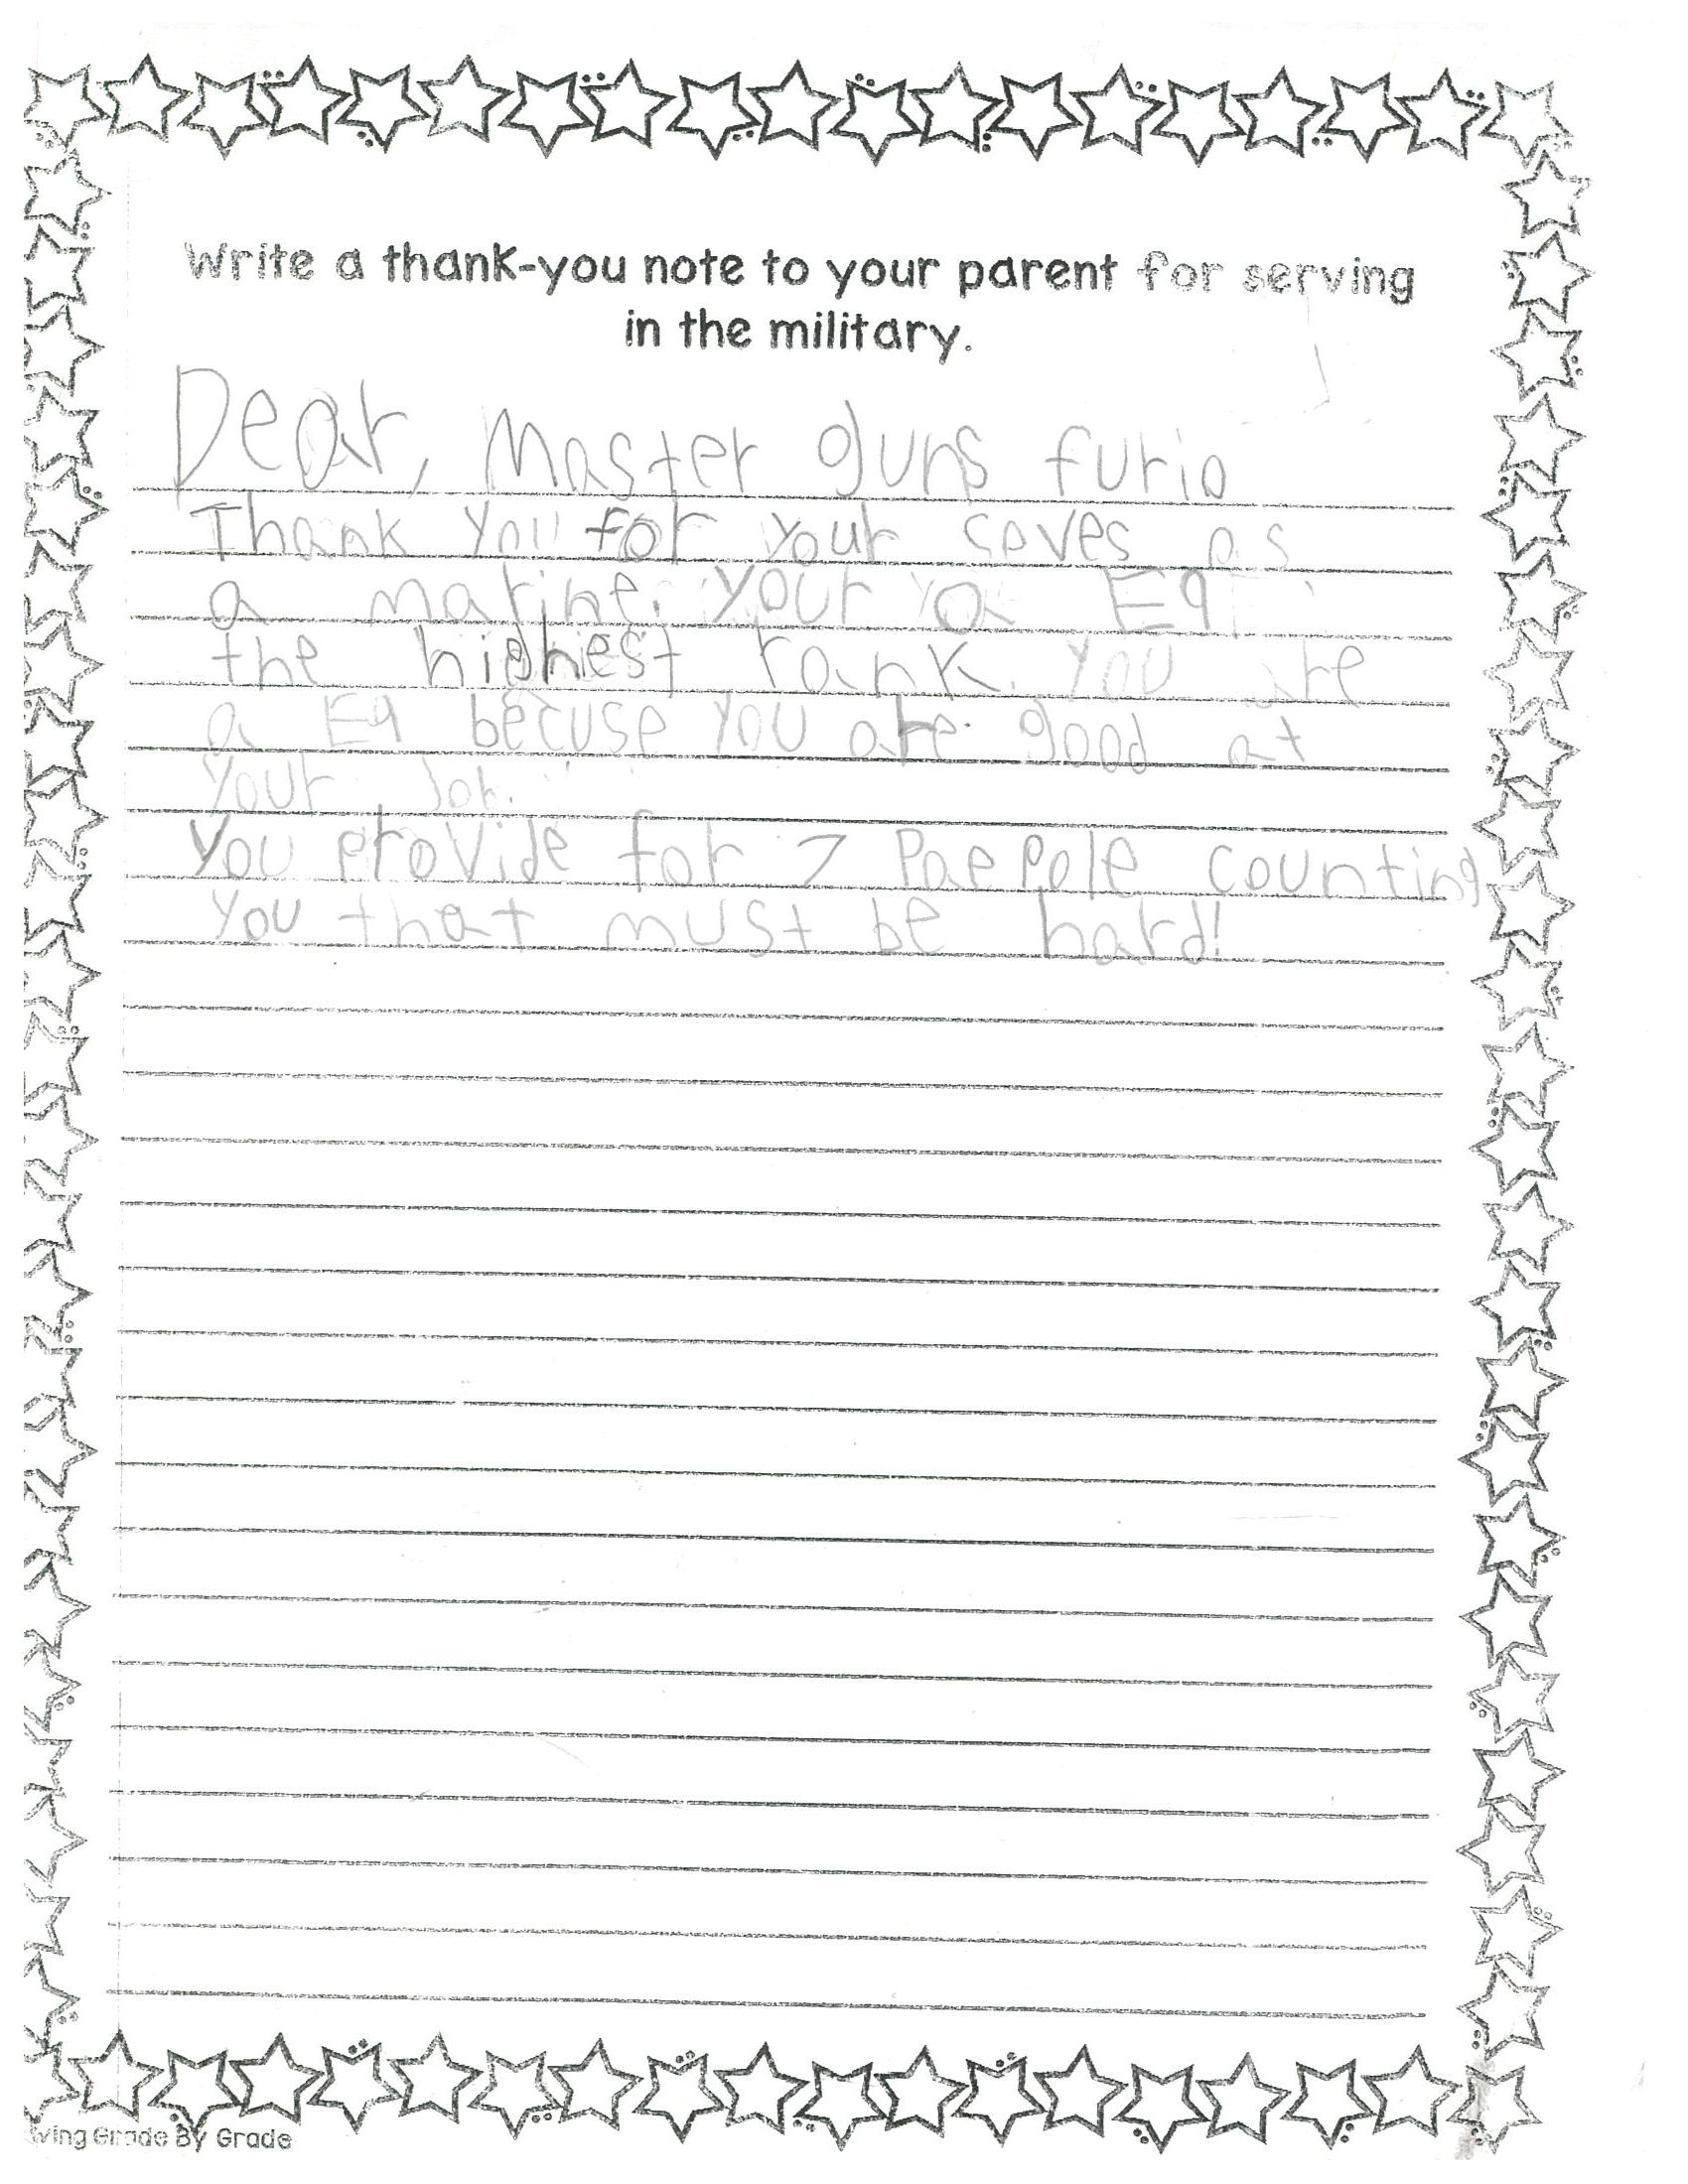 Write a thank-you note to your parent for serving
in the military.
Dear, Master guns furio
Thank you for your serves as
a marine. Your a E9
the highest rank. You are
a E9 becuse you are good at
Your Job.
You provide for 7 Paepole counting
You that must be hard!
ving Grade By Grade